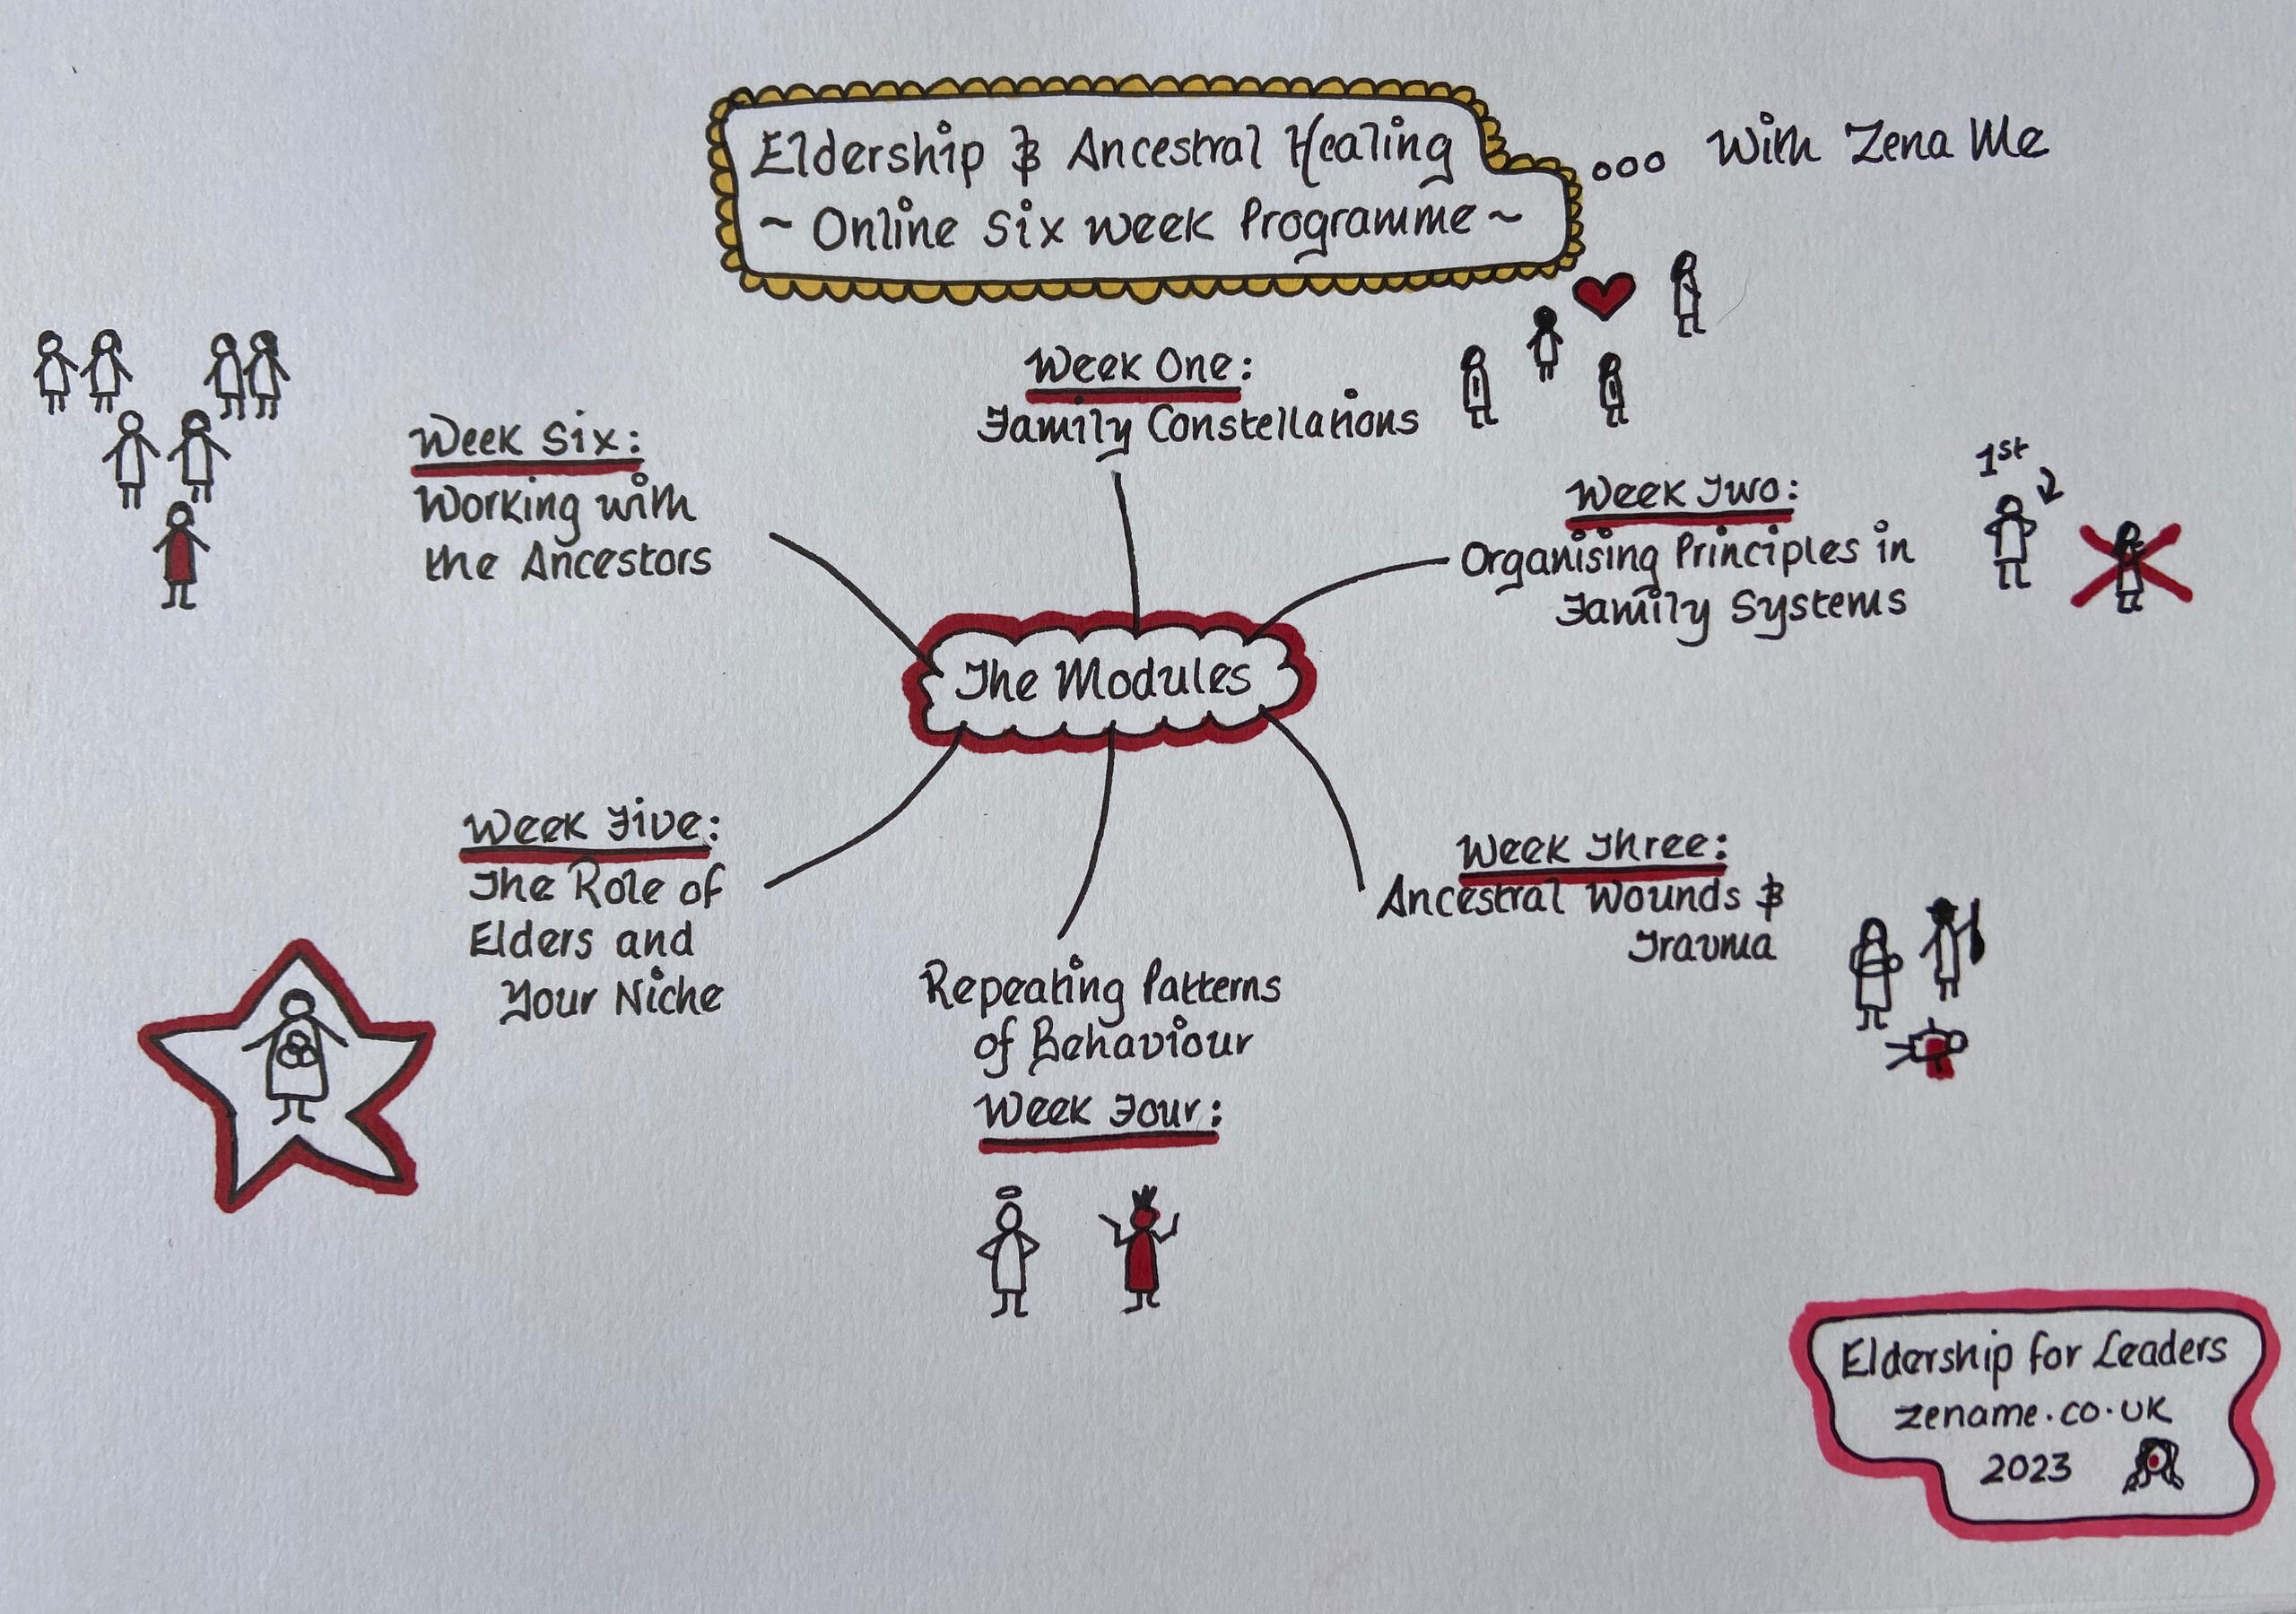 Eldership & Ancestral Healing
~ Online Six Week Programme ~
... With Zena Me
Week One:
Family Constellations
Week Two:
Organising Principles in
Family Systems
1st
Week Three:
Ancestral Wounds &
Trauma
Repeating Patterns
of Behaviour
Week Four:
Week Five:
The Role of
Elders and
Your Niche
Week Six:
Working with
the Ancestors
The Modules
Eldership for Leaders
zename.co.uk
2023